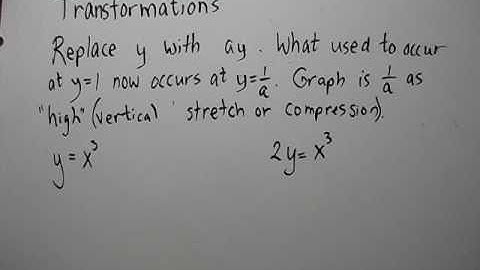 Transformations
Replace y with ay. What used to occur
at y=1 now occurs at y=1/a. Graph is 1/a as
"high" (vertical stretch or compression).
y = x³ 2y = x³